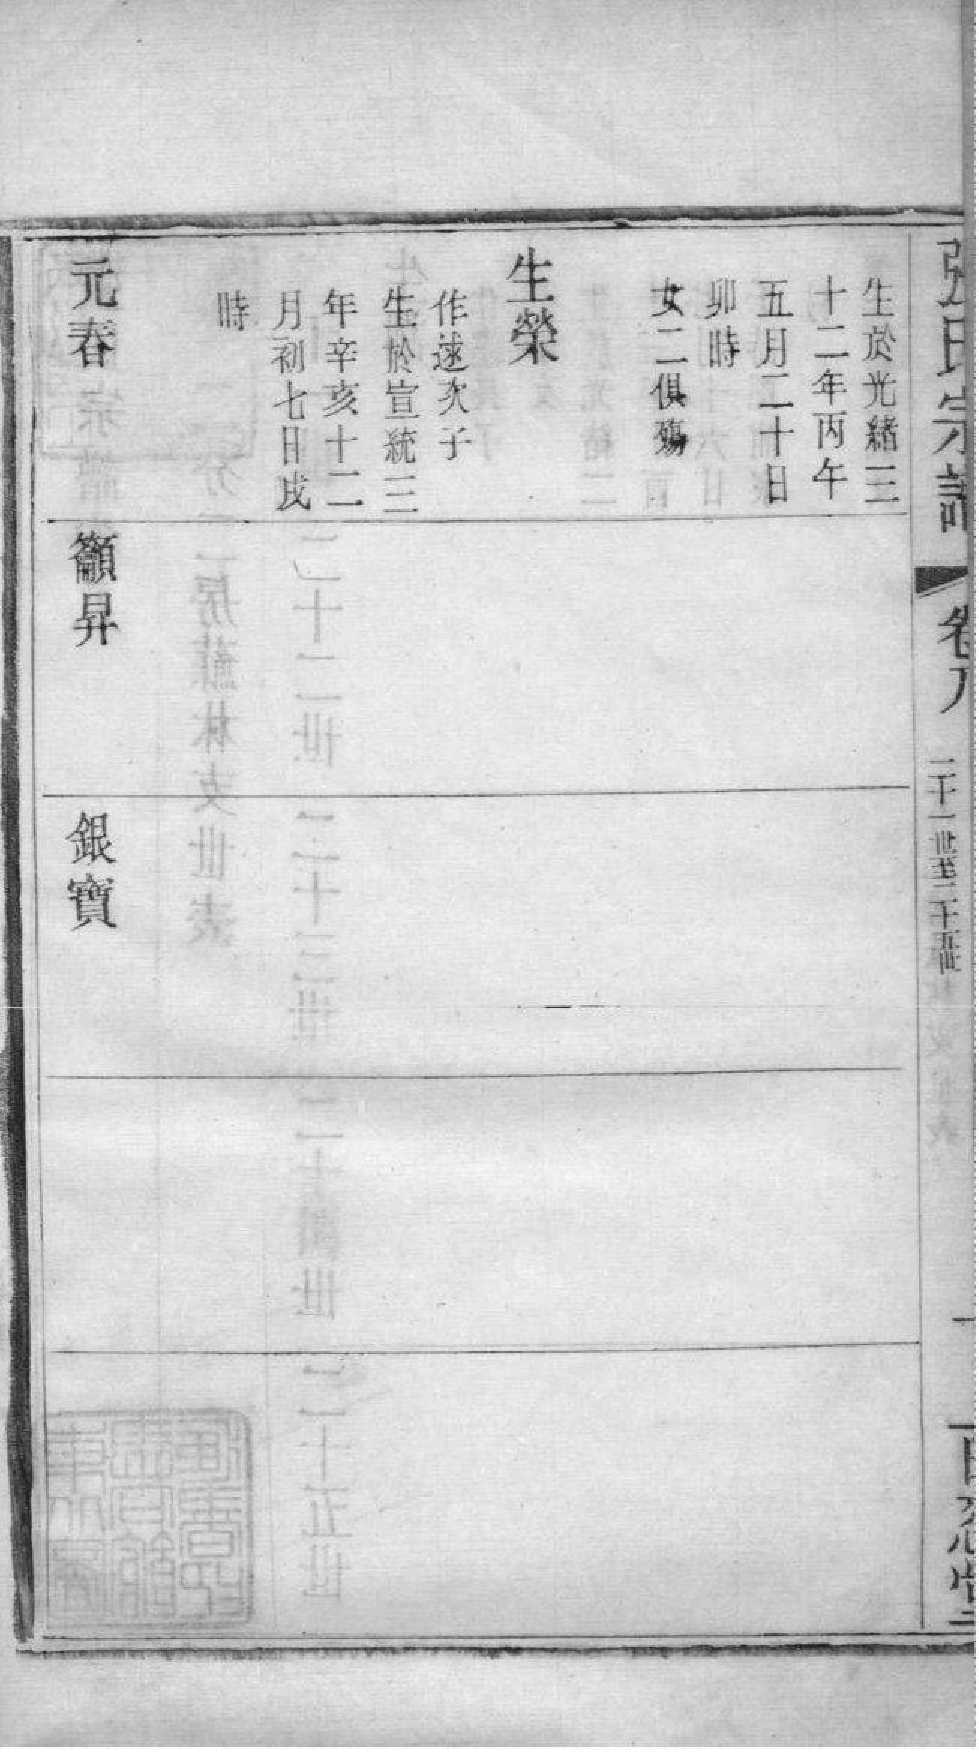 張氏宗譜
卷八
二十一世至二十五世
十
百忍堂
生於光緒三
十二年丙午
五月二十日
卯時
女二俱殤
生榮
作逑次子
生於宣統三
年辛亥十二
月初七日戌
時
元春
籲昇
銀寶